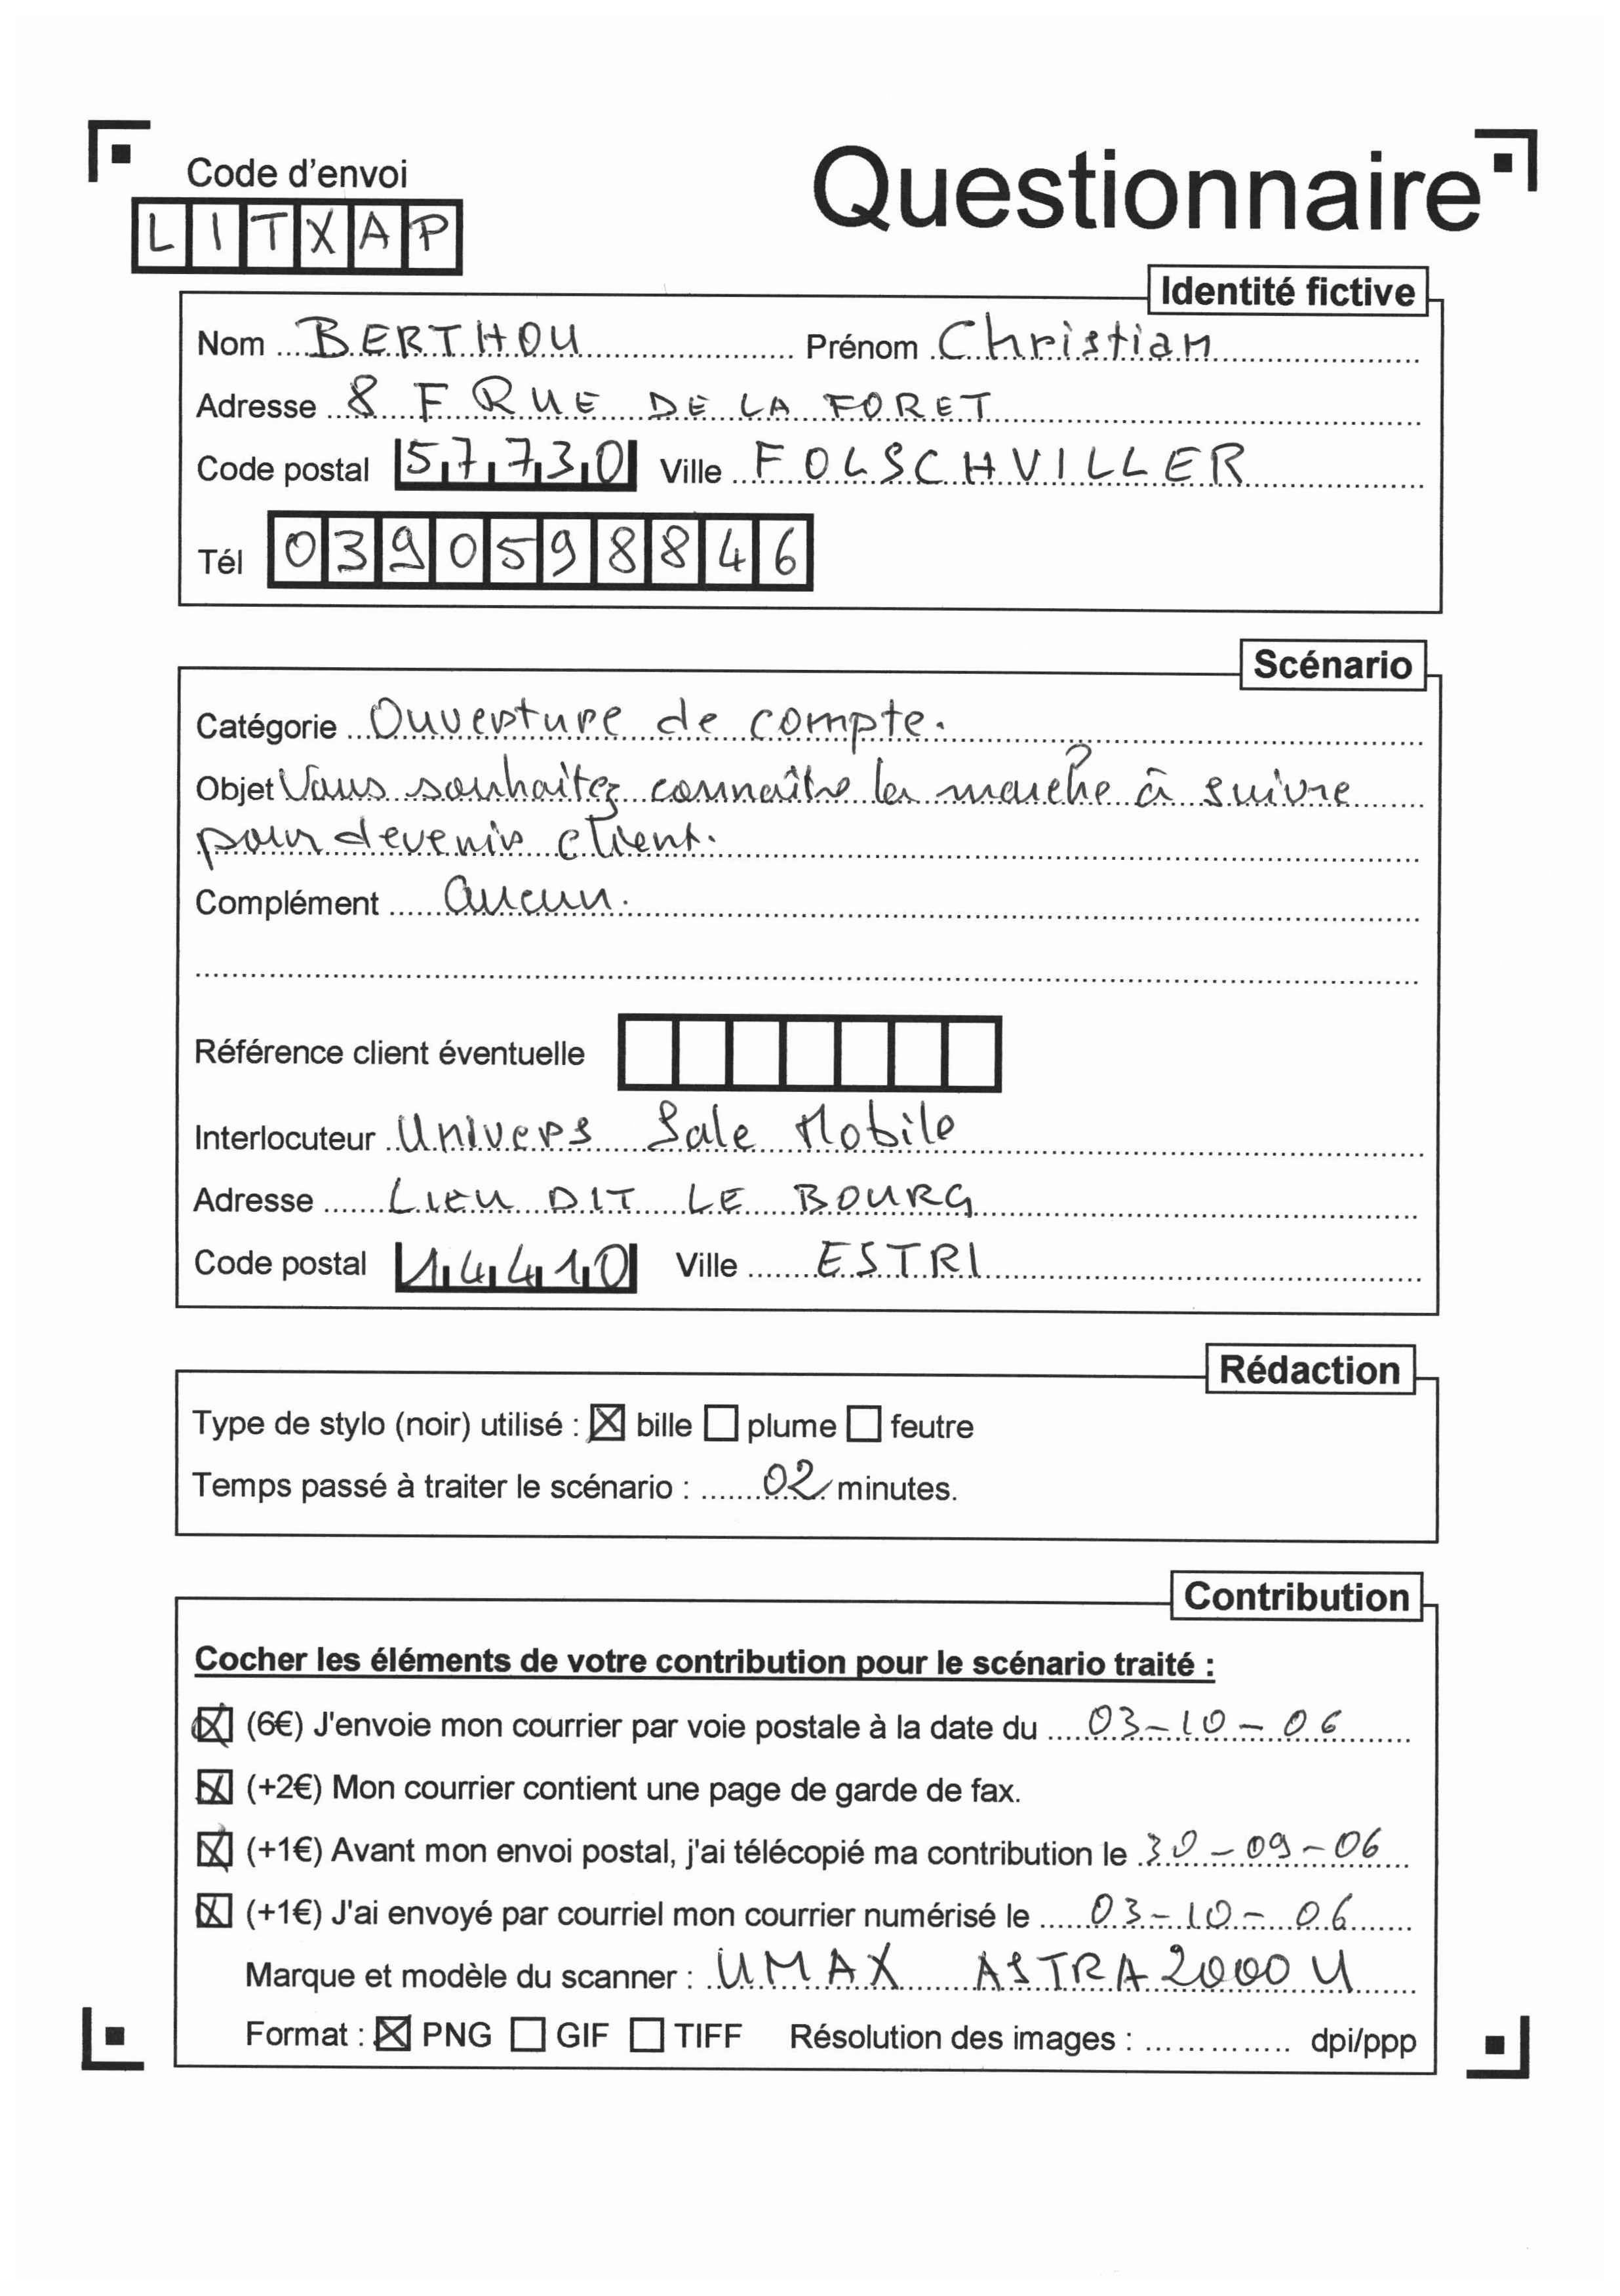 Code d'envoi
Questionnaire
LITXAP
Identité fictive
Nom BERTHOU Prénom Christian
Adresse 8 F RUE DE LA FORET
Code postal 57730 Ville FOLSCHVILLER
Tél 0390598846
Scénario
Catégorie Ouverture de compte.
Objet Vous souhaitez connaître la marche à suivre
pour devenir client.
Complément aucun.
Référence client éventuelle
Interlocuteur Univers Sale Mobile
Adresse LIEU DIT LE BOURG
Code postal 14410 Ville ESTRI
Rédaction
Type de stylo (noir) utilisé : ☒ bille ☐ plume ☐ feutre
Temps passé à traiter le scénario : 02 minutes.
Contribution
Cocher les éléments de votre contribution pour le scénario traité :
☒ (6€) J'envoie mon courrier par voie postale à la date du 03-10-06
☒ (+2€) Mon courrier contient une page de garde de fax.
☒ (+1€) Avant mon envoi postal, j'ai télécopié ma contribution le 30-09-06
☒ (+1€) J'ai envoyé par courriel mon courrier numérisé le 03-10-06
Marque et modèle du scanner : UMAX ASTRA 2000 U
Format : ☒ PNG ☐ GIF ☐ TIFF Résolution des images : .............. dpi/ppp